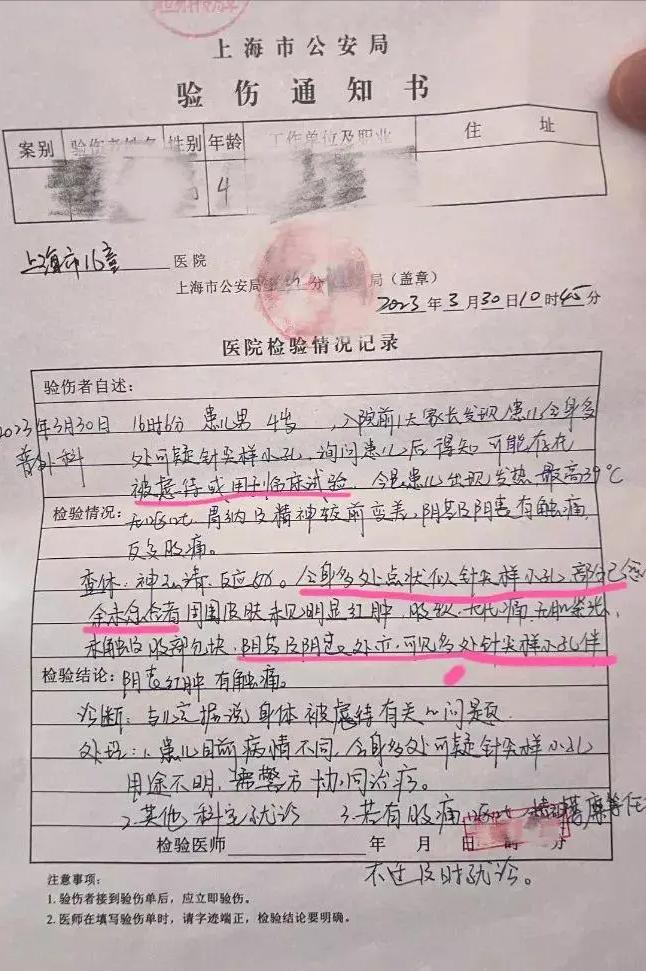 上海市公安局
验伤通知书
案别 验伤者姓名 性别 年龄 工作单位及职业 住址
4
上海市 医院
上海市公安局 分 局（盖章）
2023年3月30日10时45分
医院检验情况记录
验伤者自述：
2023年3月30日 16时6分 患儿男 4岁，入院前1天家长发现患儿全身多
普外科 处可疑针尖样小孔，询问患儿后得知可能存在
被虐待或用于临床试验，今患儿出现发热 最高39℃
检验情况：无呕吐，胃纳及精神较前变差，阴茎及阴囊有触痛，
反复腹痛。
查体：神志清，反应好。全身多处点状似针尖样小孔，部分已愈
余未愈合者周围皮肤未见明显红肿，腹软，无压痛，
未触及腹部包块，阴茎及阴囊 处 可见多处针尖样小孔伴
检验结论：阴囊红肿 有触痛。
诊断： 据说身体被虐待有关的问题
处理：1、患儿目前病情不同，全身多处可疑针尖样小孔
用途不明，需警方协同治疗。
2、其他科室就诊 3、若有腹痛、呕吐、 等任
检验医师 年 月 日 时 分
不适及时就诊。
注意事项：
1.验伤者接到验伤单后，应立即验伤。
2.医师在填写验伤单时，请字迹端正，检验结论要明确。